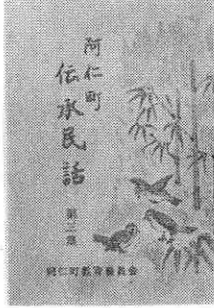 阿仁町
伝承民話
第二集
阿仁町教育委員会